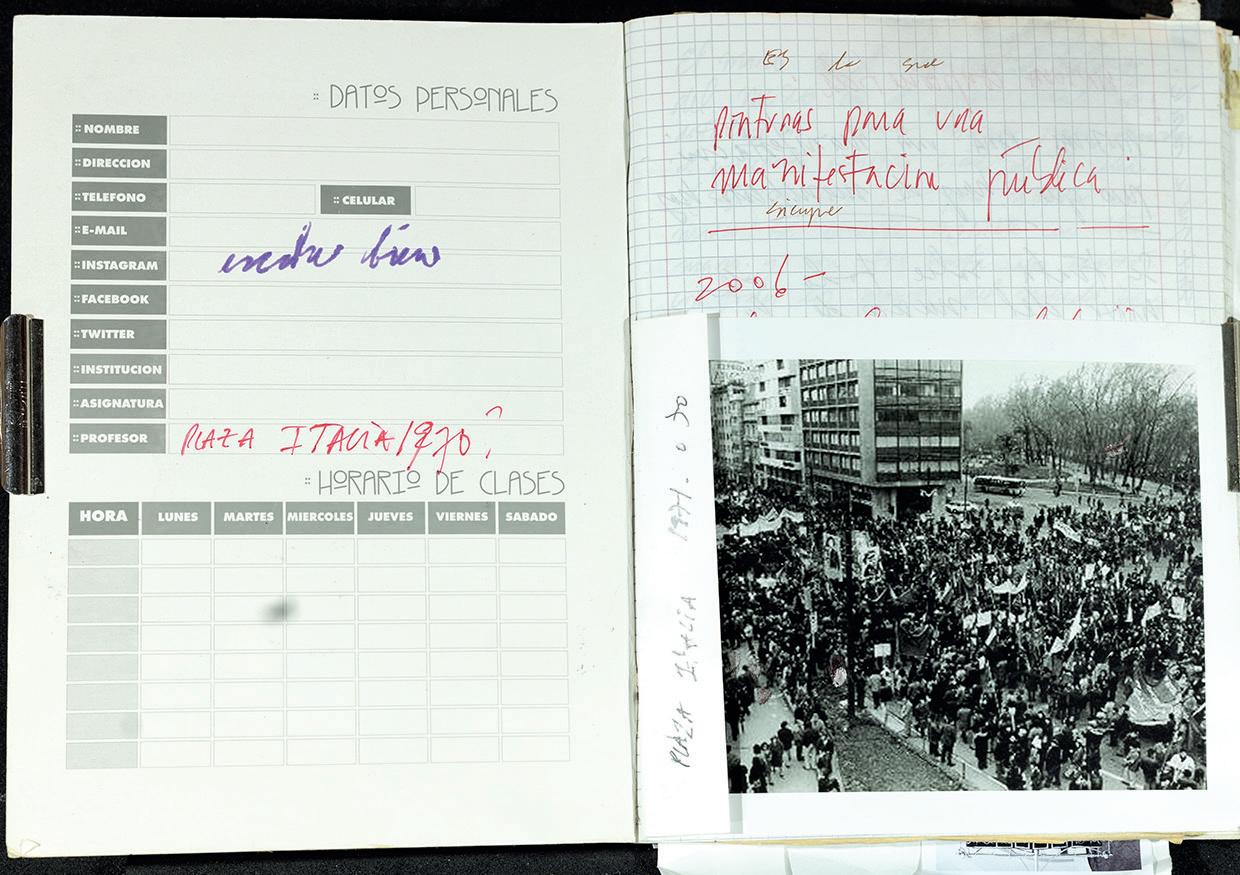 :: DATOS PERSONALES
:: NOMBRE
:: DIRECCION
:: TELEFONO
:: CELULAR
:: E-MAIL
:: INSTAGRAM
:: FACEBOOK
:: TWITTER
:: INSTITUCION
:: ASIGNATURA
:: PROFESOR
PLAZA ITALIA/1970?
:: HORARIO DE CLASES
HORA LUNES MARTES MIERCOLES JUEVES VIERNES SABADO
pinturas para una
manifestacion pública
2006-
PLAZA ITALIA 1971. o 70